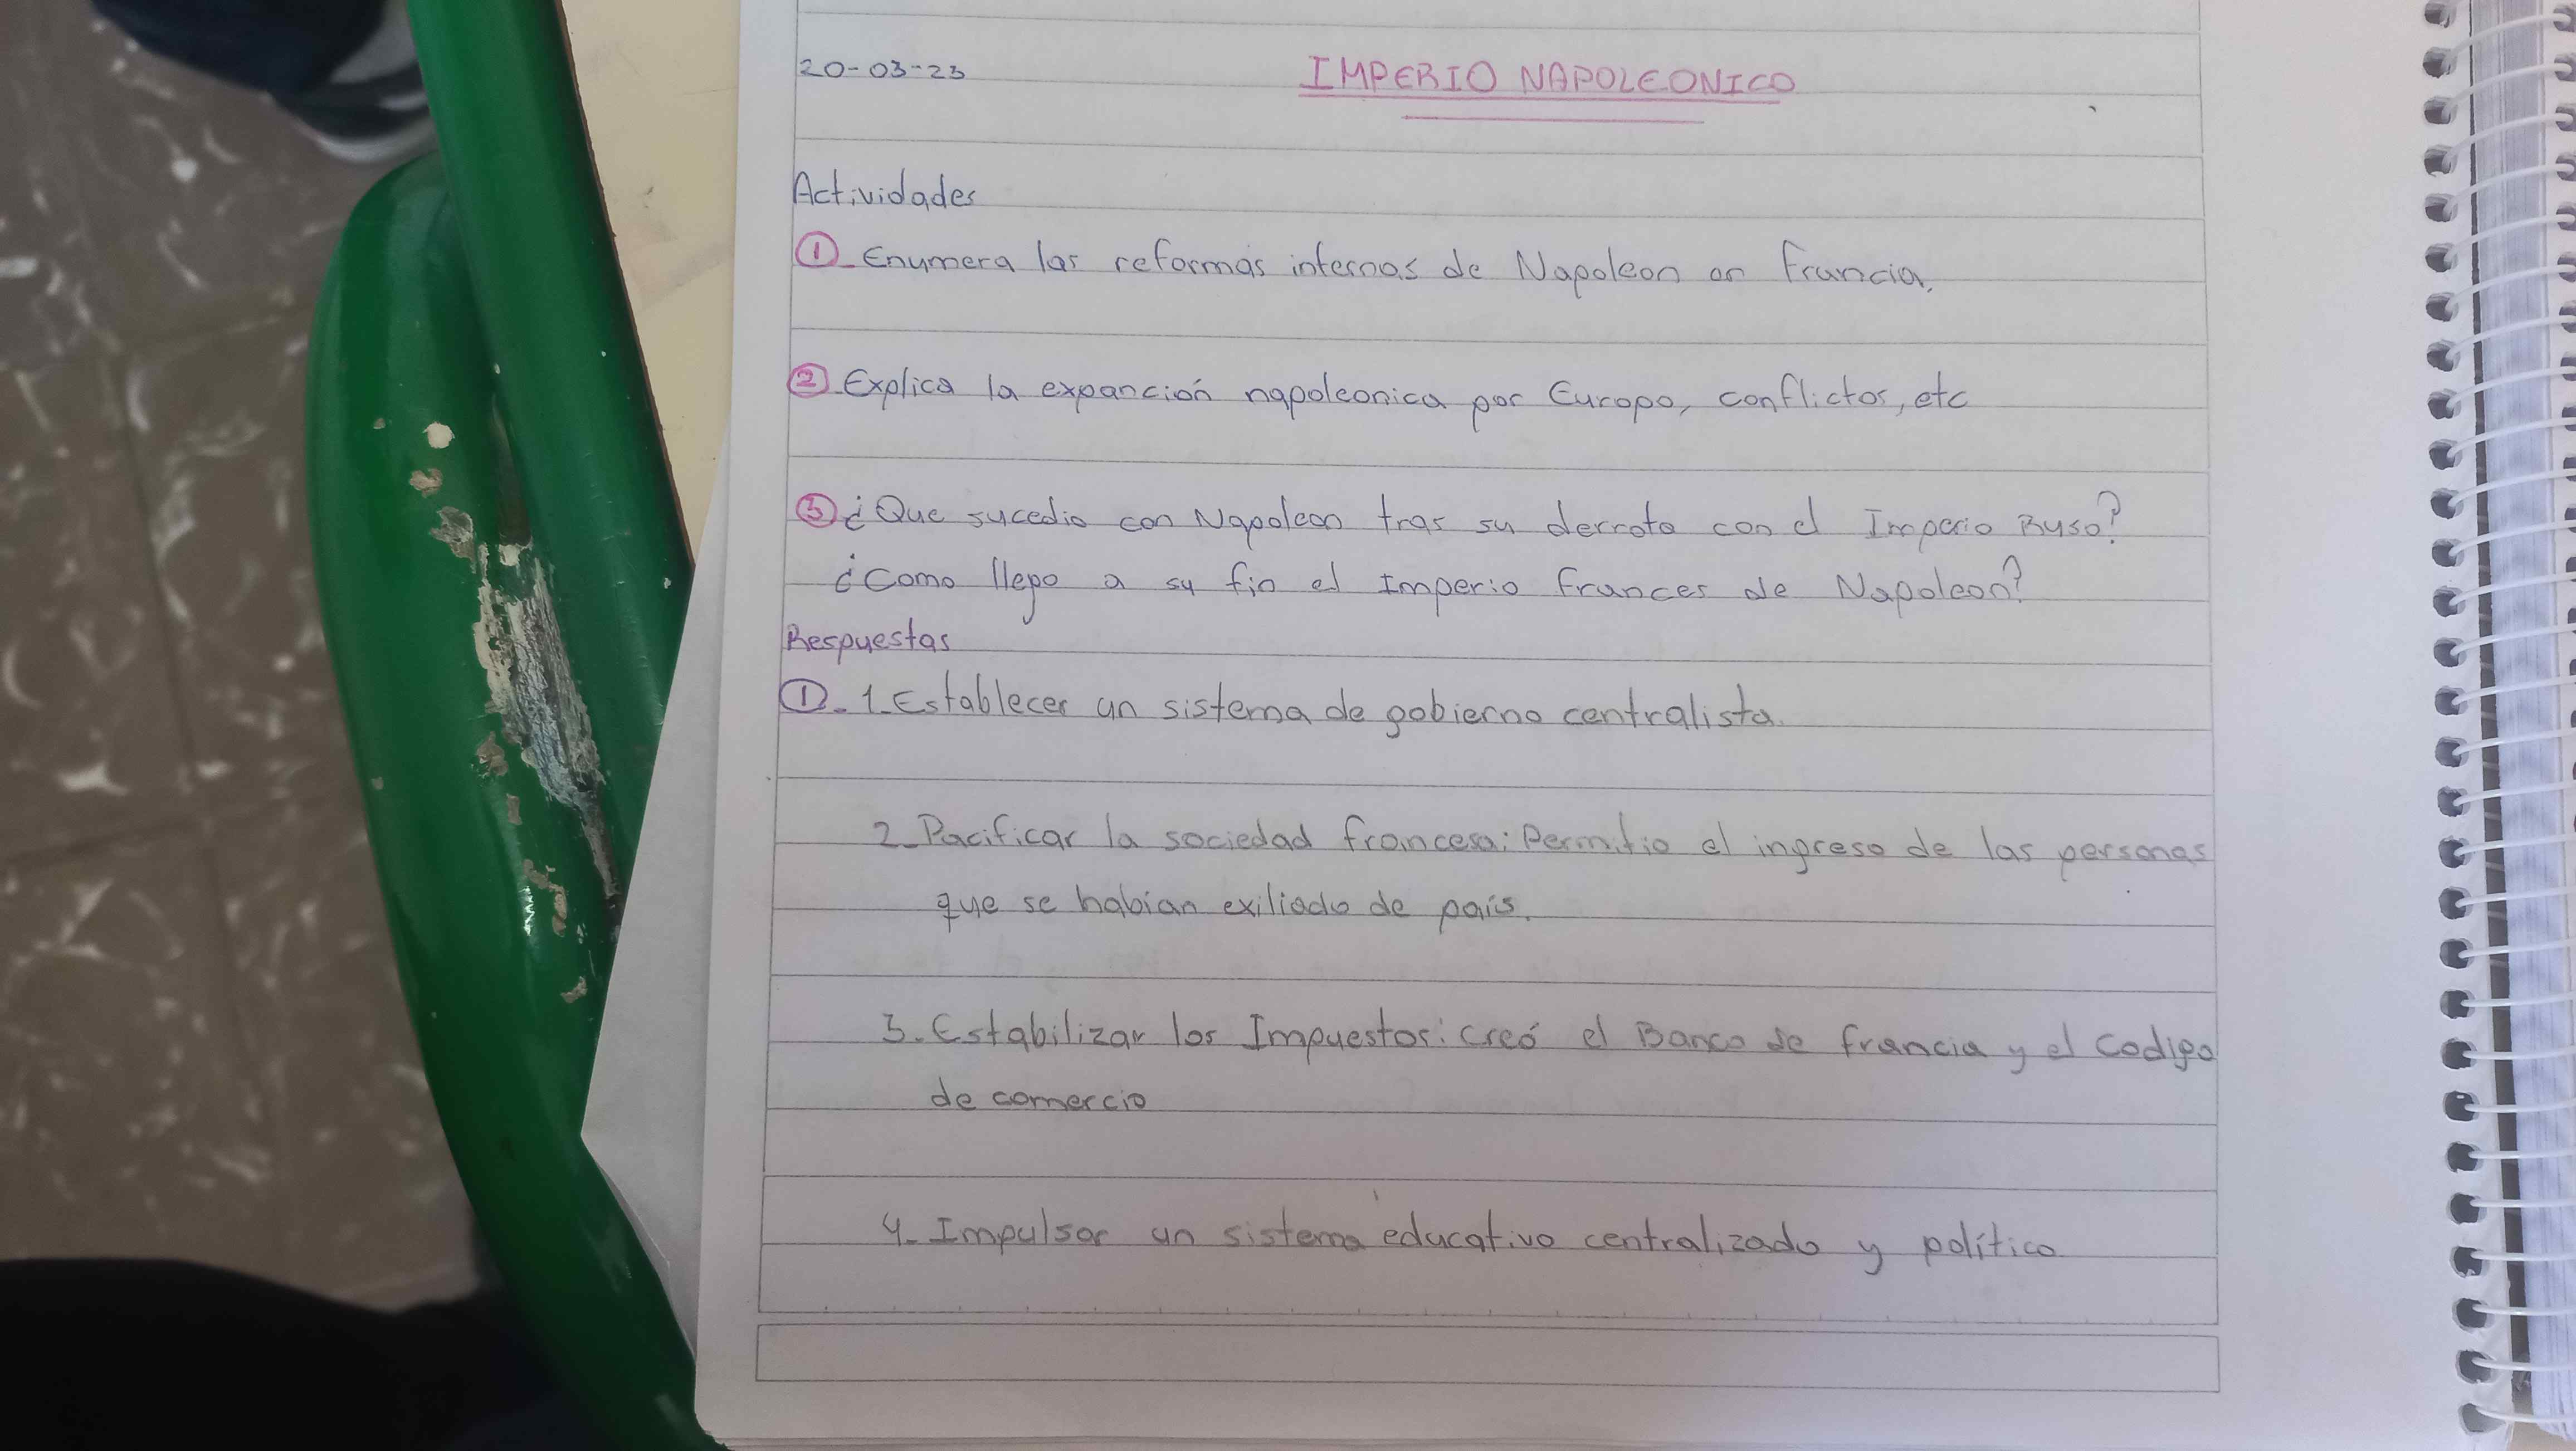 20-03-23
IMPERIO NAPOLEONICO
Actividades
① Enumera las reformas internas de Napoleon en Francia.
② Explica la expanción napoleonica por Europa, conflictos, etc
③ ¿Que sucedio con Napoleon tras su derrota con el Imperio Ruso?
¿Como llego a su fin el Imperio Frances de Napoleon?
Respuestas
①. 1. Establecer un sistema de gobierno centralista.
2. Pacificar la sociedad francesa: Permitio el ingreso de las personas
que se habían exiliado de país.
3. Estabilizar los Impuestos: creó el Banco de francia y el Codigo
de comercio
4. Impulsar un sistema educativo centralizado y político